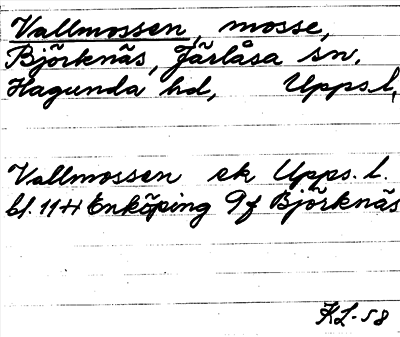 Vallmossen, mosse,
Björknäs, Järlåsa sn.
Hagunda hd, Upps.l,
Vallmossen ek Upps. l.
bl. 11H Enköping 9f Björknäs
KL-58